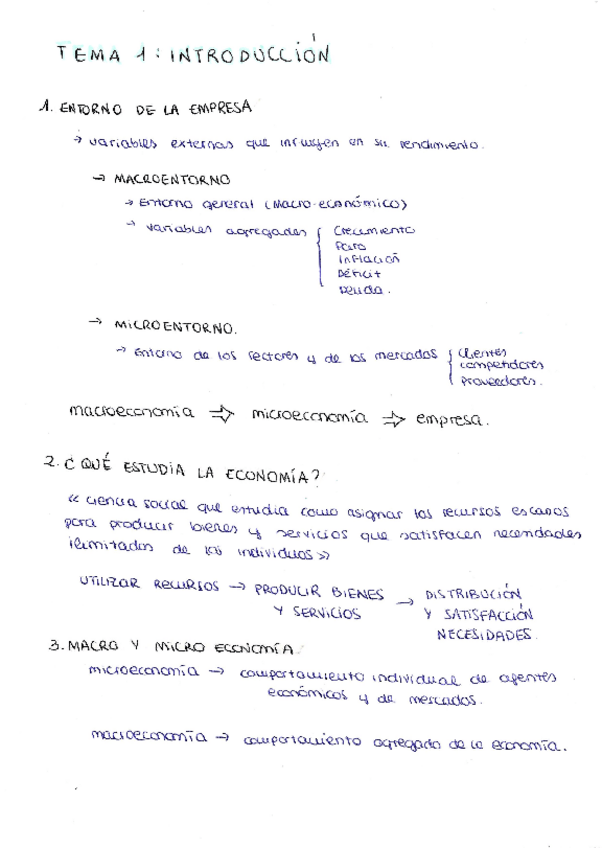 TEMA 1: INTRODUCCIÓN
1. ENTORNO DE LA EMPRESA
→ variables externas que influyen en su rendimiento.
→ MACROENTORNO
→ Entorno general (Macro-económico)
→ variables agregadas { Crecimiento
Paro
Inflación
Déficit
Deuda.
→ MICROENTORNO.
→ Entorno de los sectores y de los mercados { Clientes
competidores
proveedores.
macroeconomía ⇒ microeconomía ⇒ empresa.
2. ¿QUÉ ESTUDIA LA ECONOMÍA?
<< ciencia social que estudia como asignar los recursos escasos
para producir bienes y servicios que satisfacen necesidades
ilimitadas de los individuos >>
UTILIZAR RECURSOS → PRODUCIR BIENES
Y SERVICIOS → DISTRIBUCIÓN
Y SATISFACCIÓN
NECESIDADES.
3. MACRO Y MICRO ECONOMÍA.
microeconomía → comportamiento individual de agentes
económicos y de mercados.
macroeconomía → comportamiento agregado de la economía.